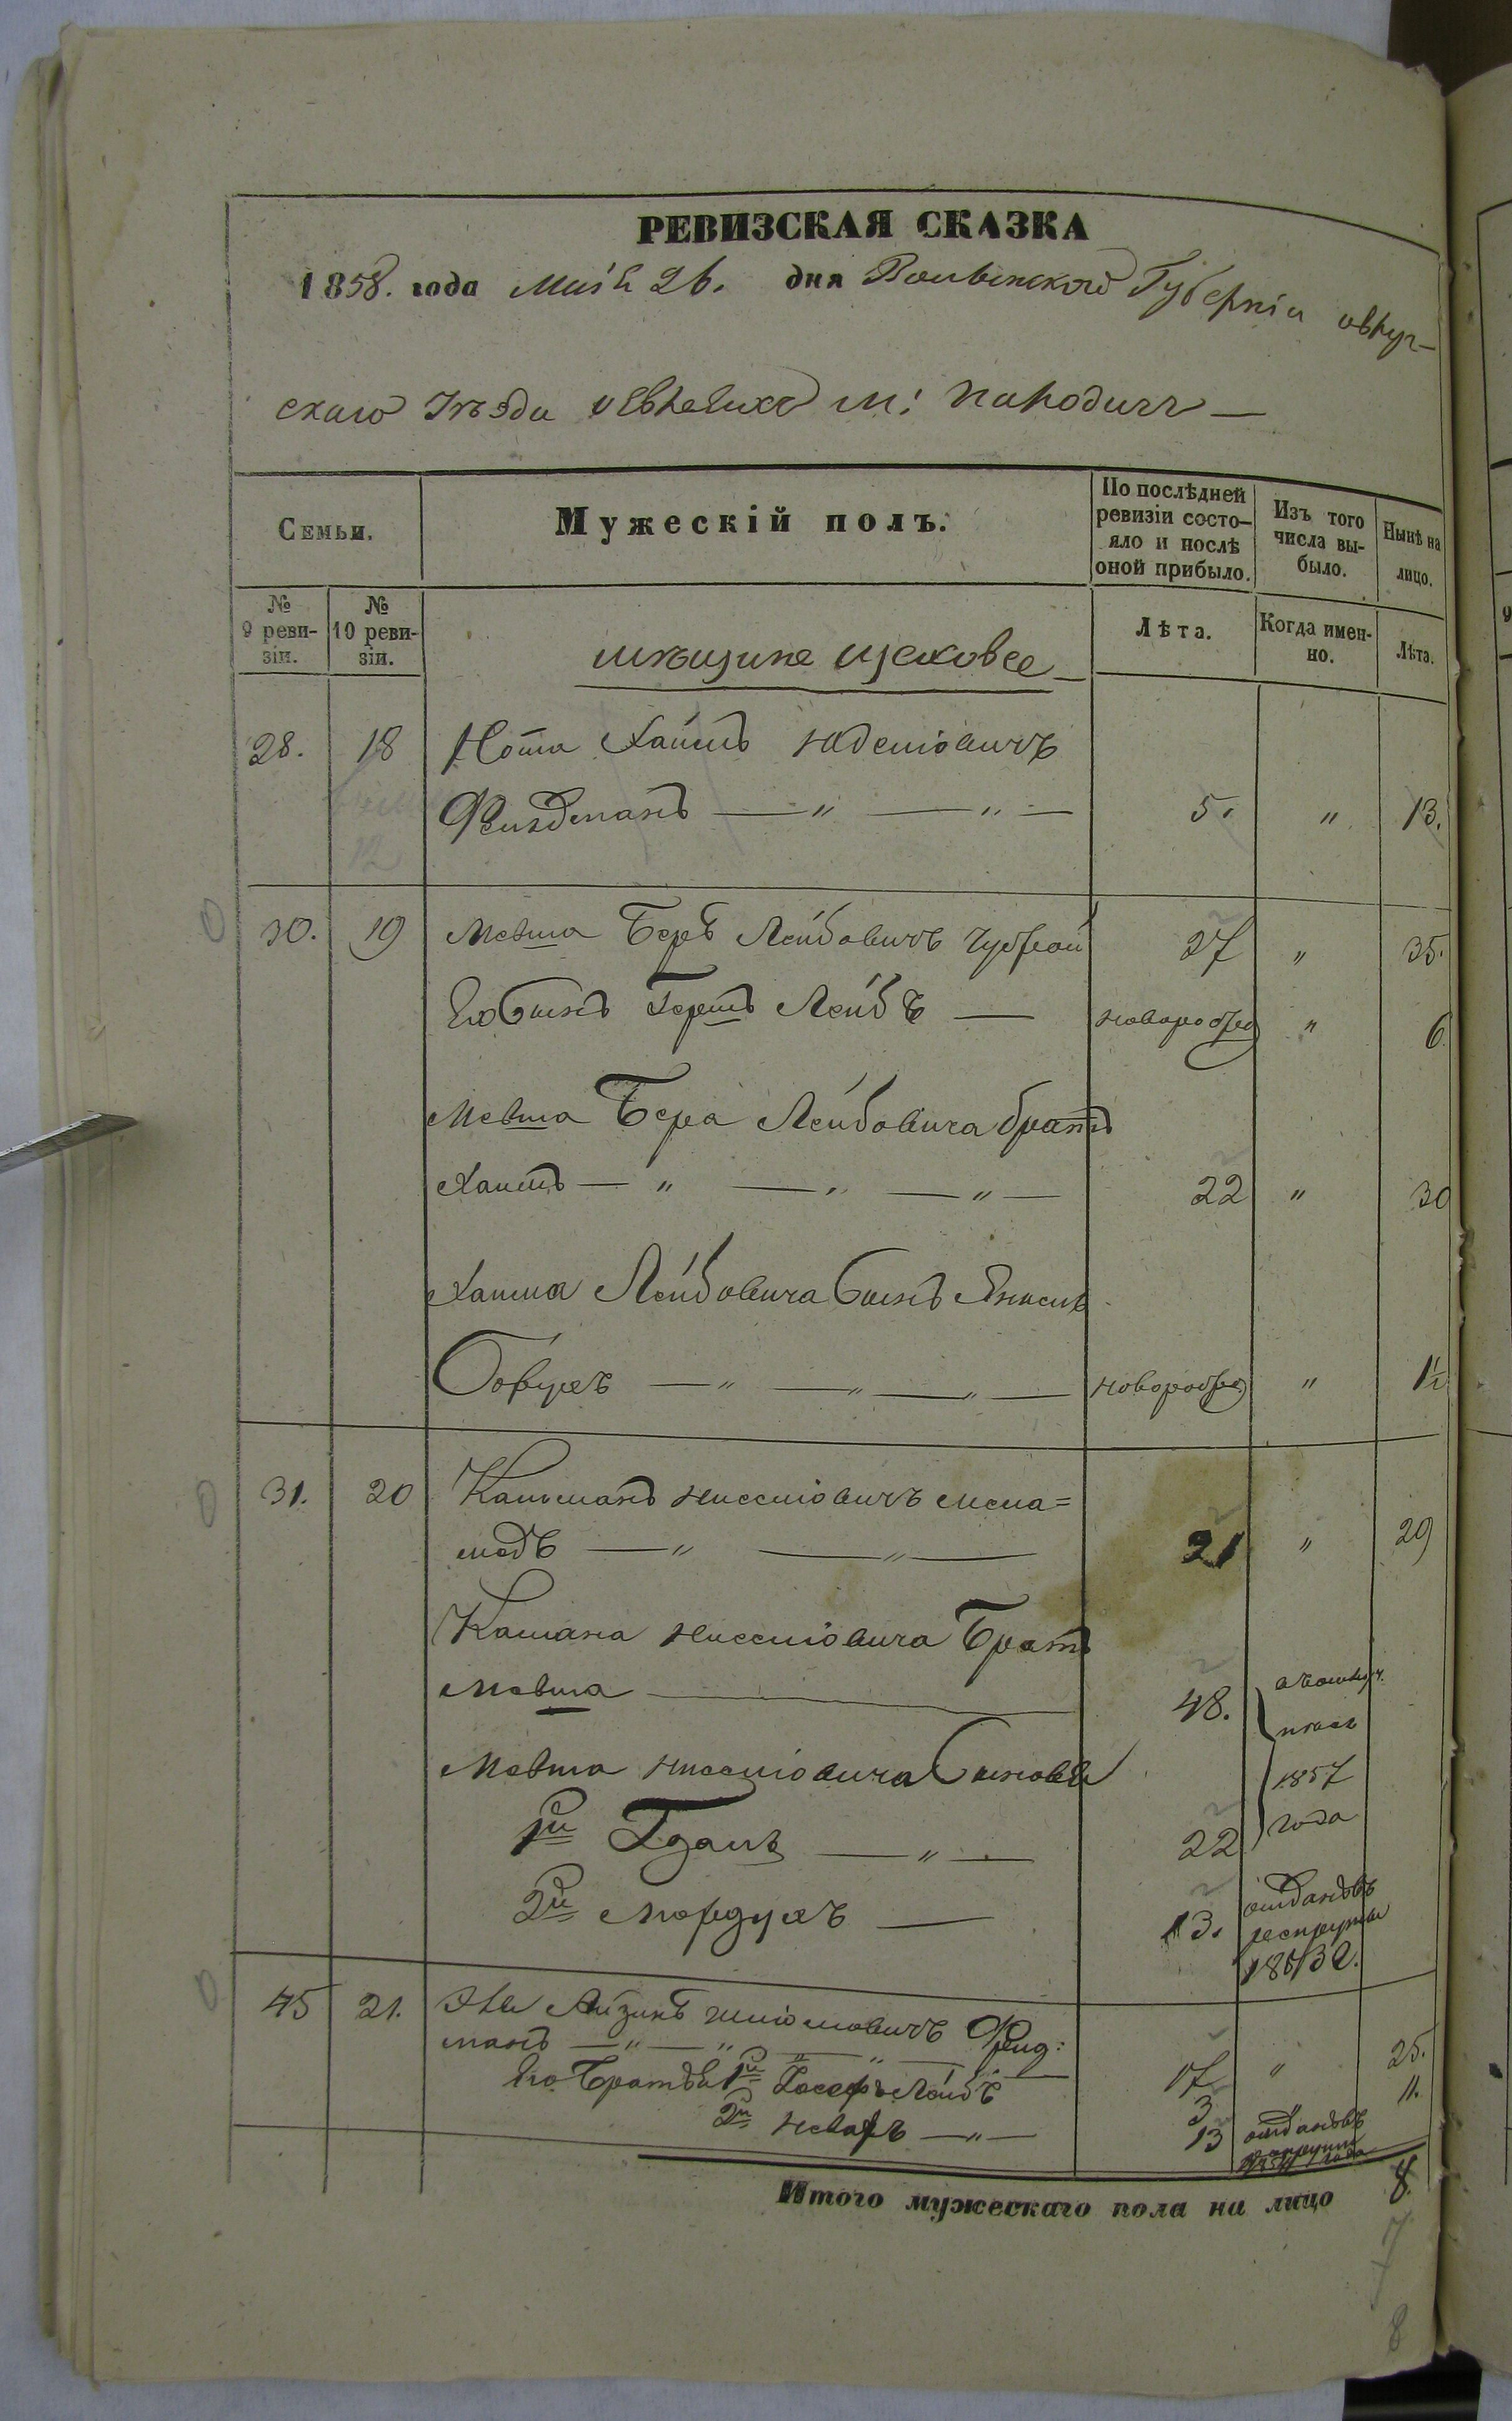 РЕВИЗСКАЯ СКАЗКА
1858. года Маія 26. дня Волынской Губерніи овруч-
скаго Уѣзда о Евреяхъ м: Народичъ —
Семьи.
Мужескій полъ.
По послѣдней ревизіи состо-яло и послѣ оной прибыло.
Изъ того числа вы-было.
Нынѣ на лицо.
№ 9 реви-зіи.
№ 10 реви-зіи.
мѣщане
Лѣта.
Когда имен-но.
Лѣта.
28. 18 Нота Хаимъ Юдковичъ
Фельдманъ — „ — „ — 5. „ 13.
30. 19 Мовша Беръ Лейбовичъ 27 „ 35.
Его Сынъ Гершъ Лейбъ — новорожд „ 6
Мовша Бера Лейбовича братъ
Хаимъ — „ — „ — „ — 22 „ 30
Хаима Лейбовича Сынъ Янкель
Борухъ — „ — „ — „ — новорожд „ 1½
31. 20 Кальманъ Нисселіовичъ
— „ — „ — 21 „ 29
Калмана Нисселіовича Братъ
Мовша — 48.
Мовша Нисселіовича Сыновья
1й — „ — 22 1857 года
2й Мордухъ — 13. отданъ въ рекруты
45 21. Айзикъ Шліомовичъ Фрид:
манъ — „ — „ — „ — „ — 17 „ 25.
Его Братья 1й Іосефъ Лейбъ 3 „ 11.
2й — „ — 13 отданъ въ рекруты года
Итого мужескаго пола на лицо 8.
7
8